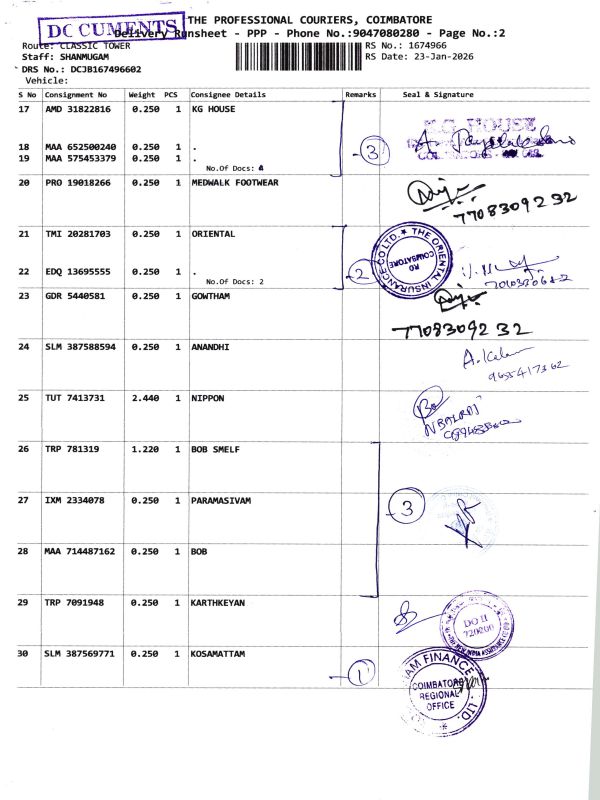 DOCUMENTS
THE PROFESSIONAL COURIERS, COIMBATORE
Delivery Runsheet - PPP - Phone No.:9047080280 - Page No.:2
Route: CLASSIC TOWER
RS No.: 1674966
Staff: SHANMUGAM
RS Date: 23-Jan-2026
DRS No.: DCJB167496602
Vehicle:
S No Consignment No Weight PCS Consignee Details Remarks Seal & Signature
17 AMD 31822816 0.250 1 KG HOUSE
K.G. HOUSE
18 MAA 652500240 0.250 1 .
3
19 MAA 575453379 0.250 1 .
No.Of Docs:
20 PRO 19018266 0.250 1 MEDWALK FOOTWEAR
7708309232
21 TMI 20281703 0.250 1 ORIENTAL
THE ORIENTAL INSURANCE CO LTD.
RO
COIMBATORE
22 EDQ 13695555 0.250 1 .
2
No.Of Docs: 2
23 GDR 5440581 0.250 1 GOWTHAM
7708309232
24 SLM 387588594 0.250 1 ANANDHI
9655417362
25 TUT 7413731 2.440 1 NIPPON
26 TRP 781319 1.220 1 BOB SMELF
27 IXM 2334078 0.250 1 PARAMASIVAM
3
28 MAA 714487162 0.250 1 BOB
29 TRP 7091948 0.250 1 KARTHKEYAN
DO II
720200
30 SLM 387569771 0.250 1 KOSAMATTAM
1
FINANCE
LTD.
COIMBATORE
REGIONAL
OFFICE